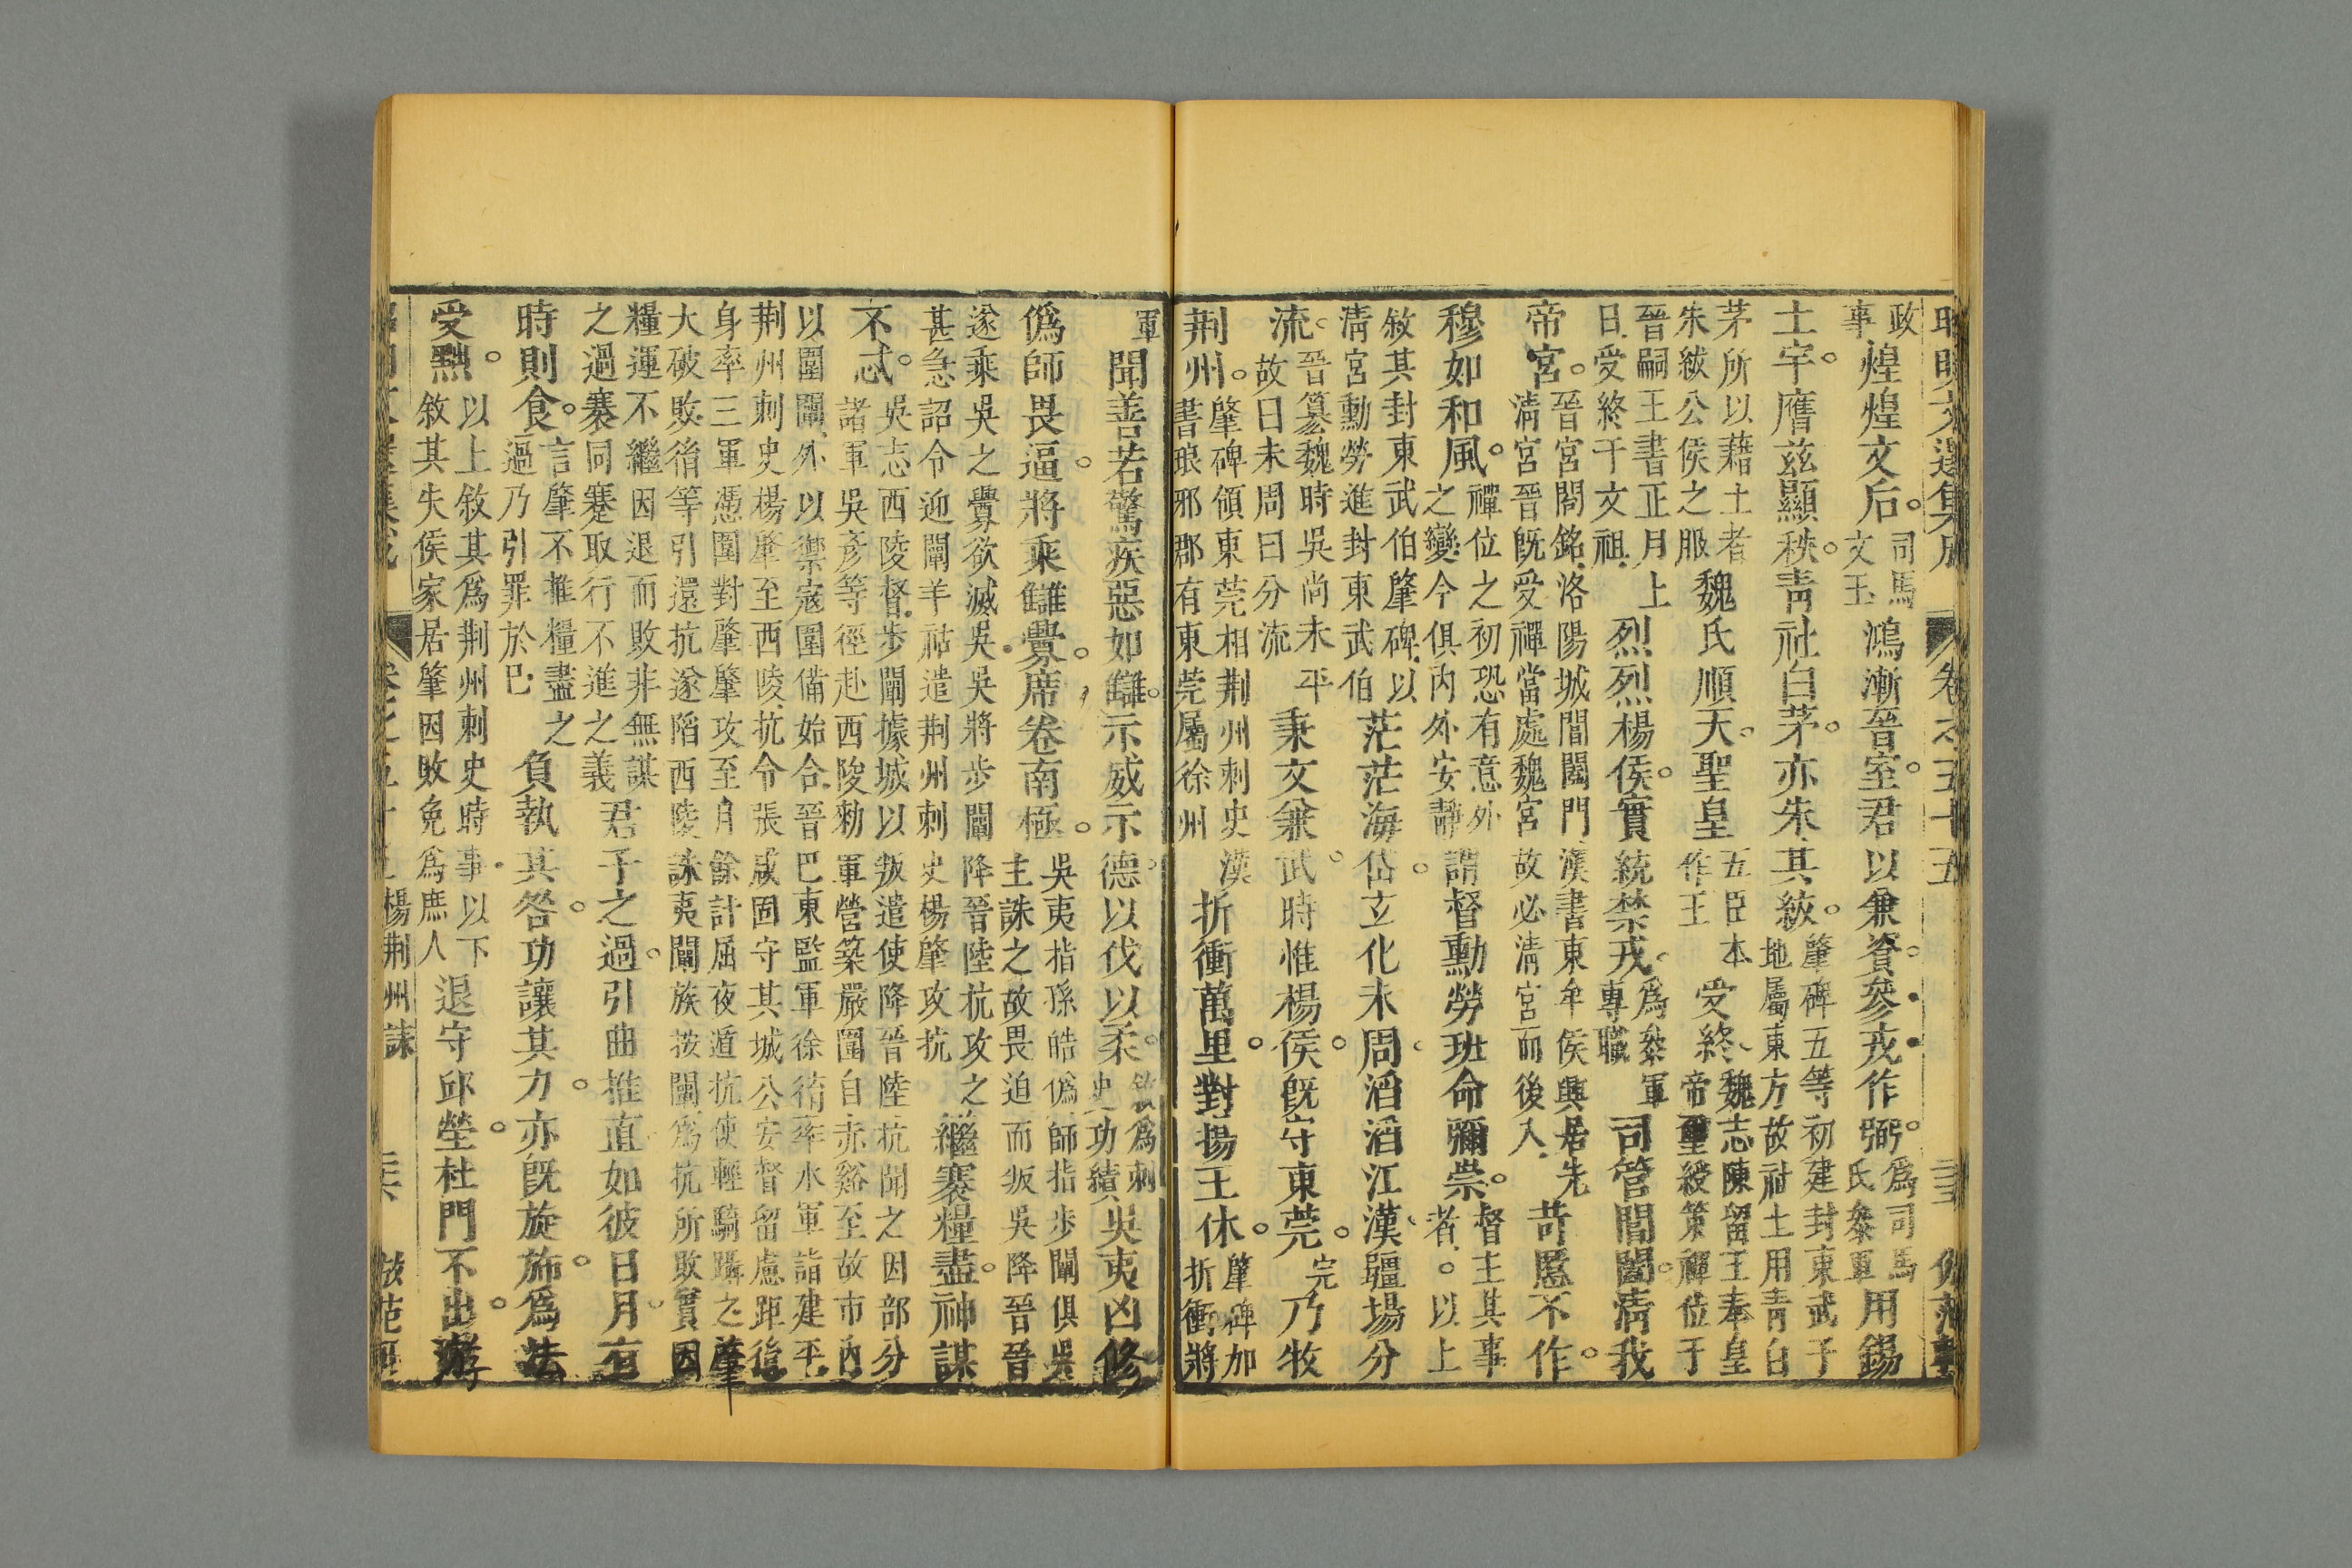 昭明文選集成 卷之五十五
政
事
煌煌文后。
司馬
文王
鴻漸晉室。君以兼資。參戎作弼。
為司馬
氏參軍
用錫
土宇。膺茲顯秩。青社白茅。亦朱其紱。
肇碑五等初建封東武子
地屬東方故社土用青白
茅所以藉土者
朱紱公侯之服
魏氏順天。聖皇
五臣本
作王
受終、
魏志陳留王奉皇
帝璽綬策禪位于
晉嗣王書正月上
日受終于文祖
烈烈楊侯。實統禁戎。
為參軍
專職
司管閶闔。清我
帝宮。
晉宮閣銘洛陽城閶闔門漢書東牟侯興居先
清宮晉既受禪當處魏宮故必清宮而後入
苛慝不作。
穆如和風。
禪位之初恐有意外
之變今俱內外安靜
謂督勳勞班命彌崇。
督主其事
者。以上
敘其封東武伯肇碑以
清宮勳勞進封東武伯
茫茫海岱。玄化未周滔滔江漢疆場分
流。
晉篡魏時吳尚未平
故曰未周曰分流
秉文兼武。時惟楊侯。既守東莞。
完
乃牧
荊州。
肇碑領東莞相荊州刺史漢
書琅邪郡有東莞屬徐州
折衝萬里。對揚王休。
肇碑加
折衝將
軍
聞善若驚疾惡如讎。示威示德。以伐以柔。
敘為刺
史功績
吳夷凶修
偽師畏逼。將乘讎釁。席卷南極。
吳夷指孫皓偽師指步闡俱吳
主誅之故畏迫而叛吳降晉晉
遂乘吳之釁欲滅吳吳將步闡降晉陸抗攻之
甚急詔令迎闡羊祜遣荊州刺史楊肇攻抗
繼褰糧盡。神謀
不忒。
吳志西陵督步闡據城以叛遣使降晉陸抗聞之因部分
諸軍吳彥等徑赴西陵勑軍營築嚴圍自赤谿至故市內
以圍闡外以禦寇圍備始合晉巴東監軍徐胤率水軍詣建平
荊州刺史楊肇至西陵抗令張咸固守其城公安督留慮距後
身率三軍憑圍對肇肇攻至月餘計屈夜遁抗使輕騎躡之肇
大破敗胤等引還抗遂陷西陵誅夷闡族按闡為抗所敗實因
糧運不繼因退而敗非無謀
之過褰同蹇取行不進之義
君子之過。引曲推直如彼日月有
時則食。
言肇不推糧盡之
過乃引罪於己
負執其咎。功讓其力。亦既旋旆。為法
受黜。
以上敘其為荊州刺史時事以下
敘其失侯家居肇因敗免為庶人
退守邱塋。杜門不出。游
卷之五十五 楊荊州誄